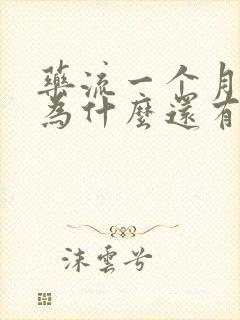 藥流一个月
為什麼還有
沫雲兮